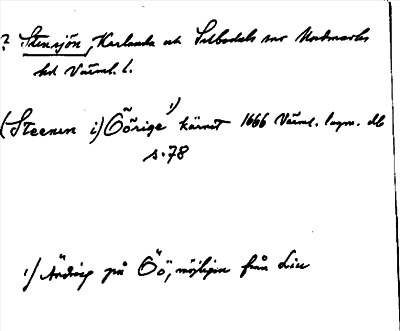 ? Stensjön, Karlanda och Silbodals snr Nordmarks
hd Värml. l.
(Steenen i) Öörige ¹) kärret 1666 Värml. lagm. db
s. 78
¹) Ändrag på Öö, möjligen från Lin